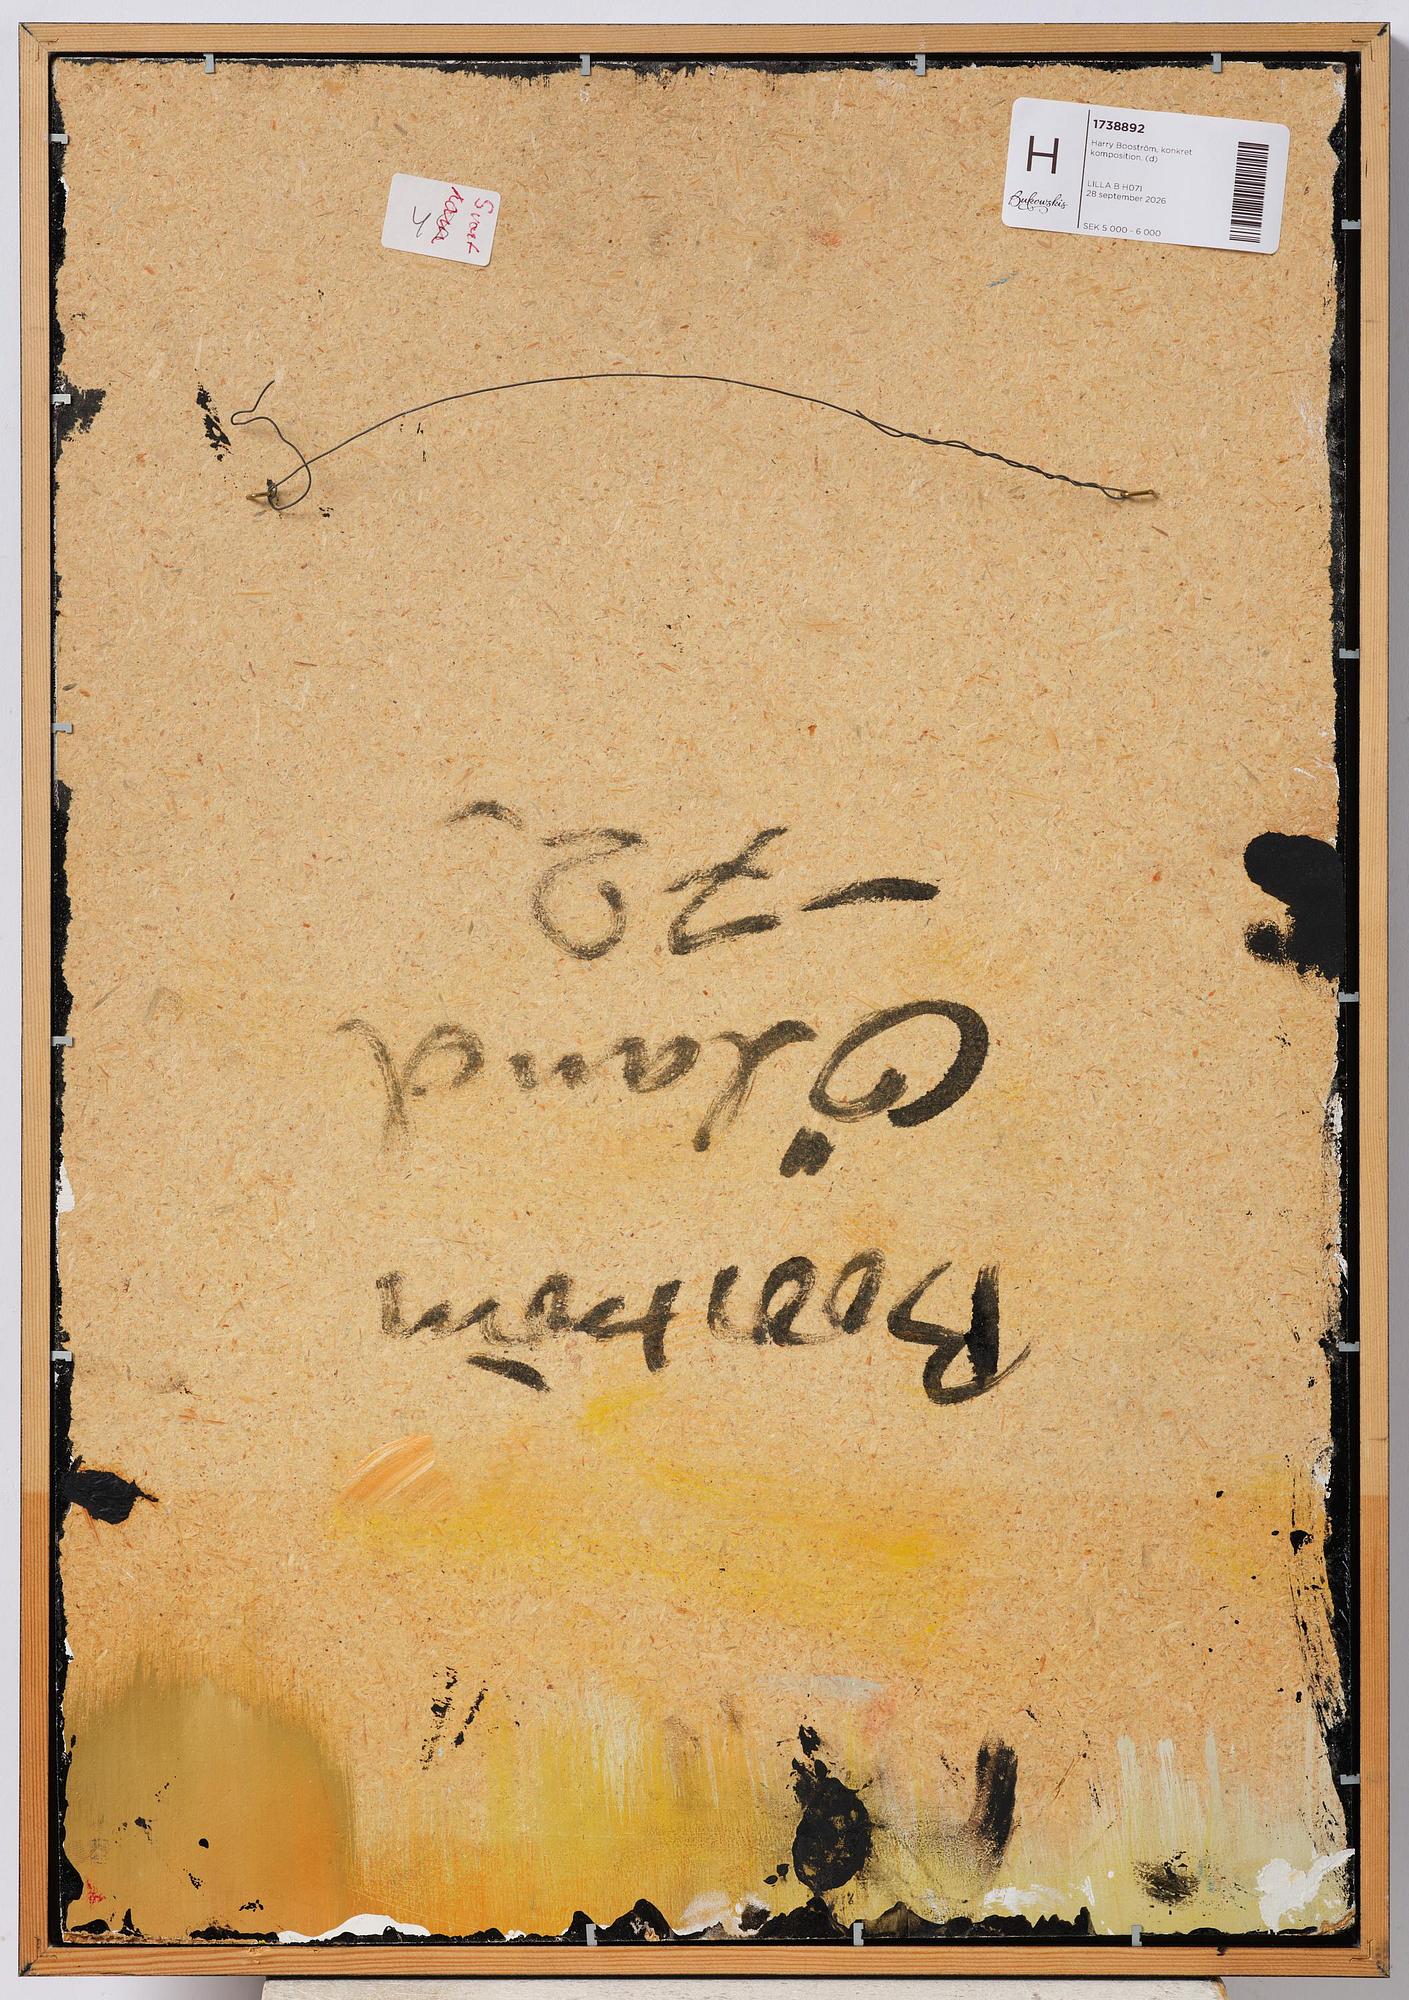 1738892
Harry Booström, konkret
komposition. (d)
LILLA B H071
28 september 2026
SEK 5 000 - 6 000
H
Bukowskis
Svart
ram
4
Booström
Öland
-72